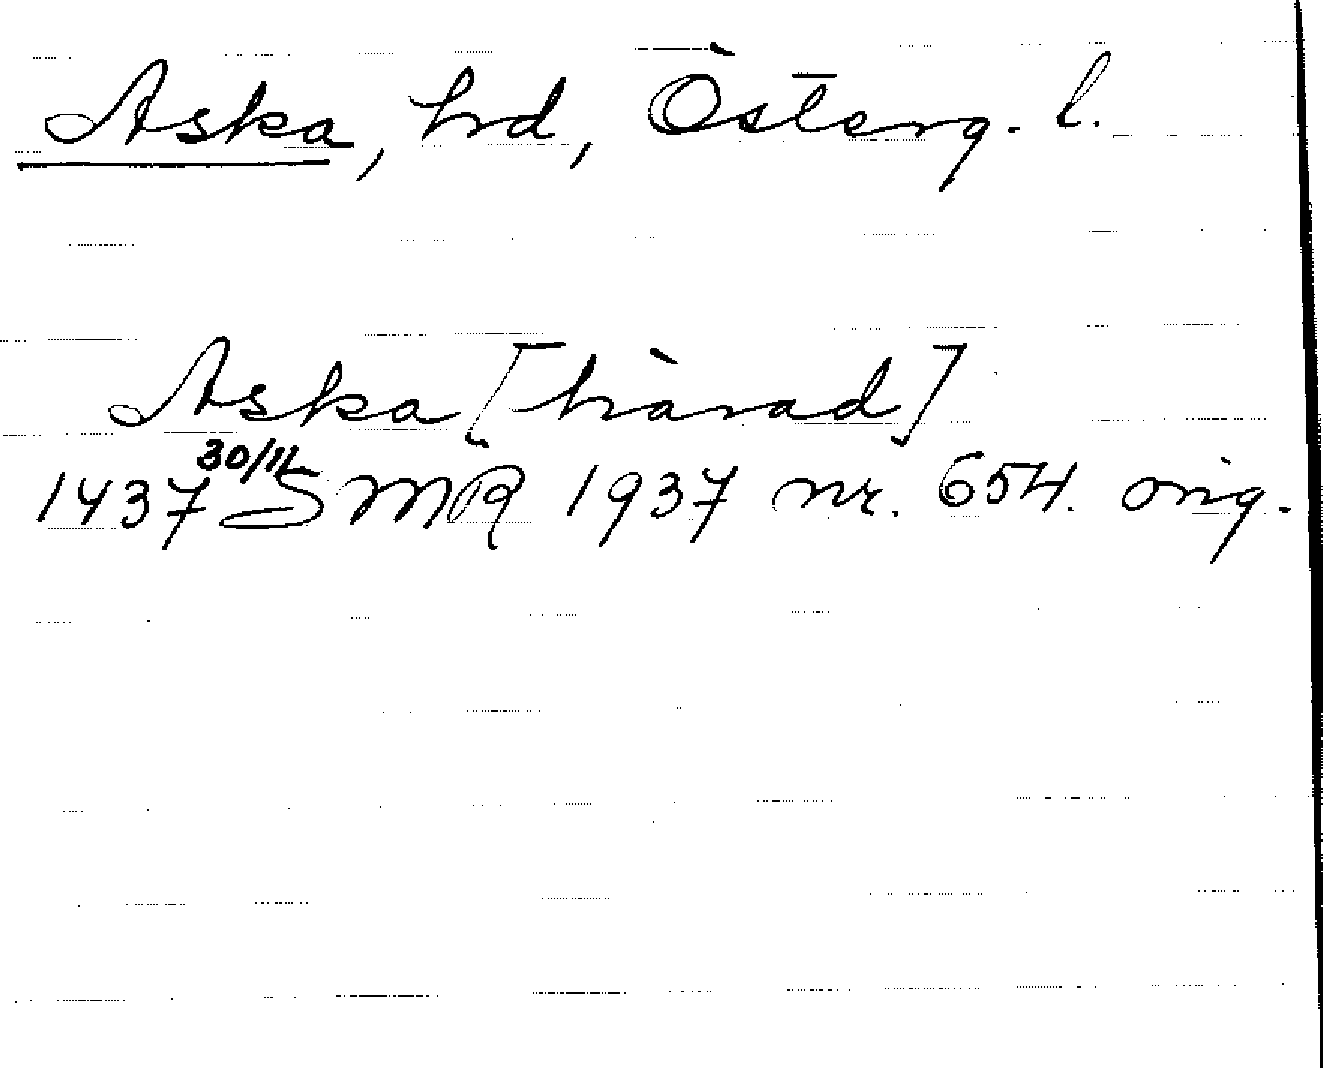 Aska, hd, Österg. l.
Aska [härad]
1437 30/11 SMR 1937 nr. 654. orig.